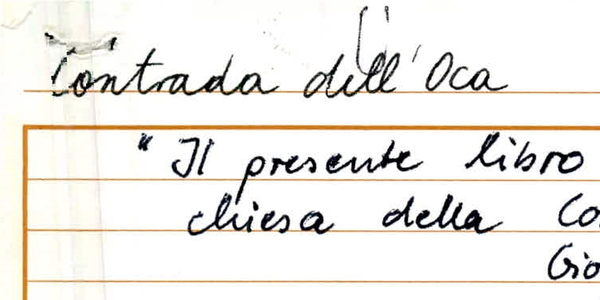 Contrada dell'Oca
"Il presente libro
chiesa della Co
Gio